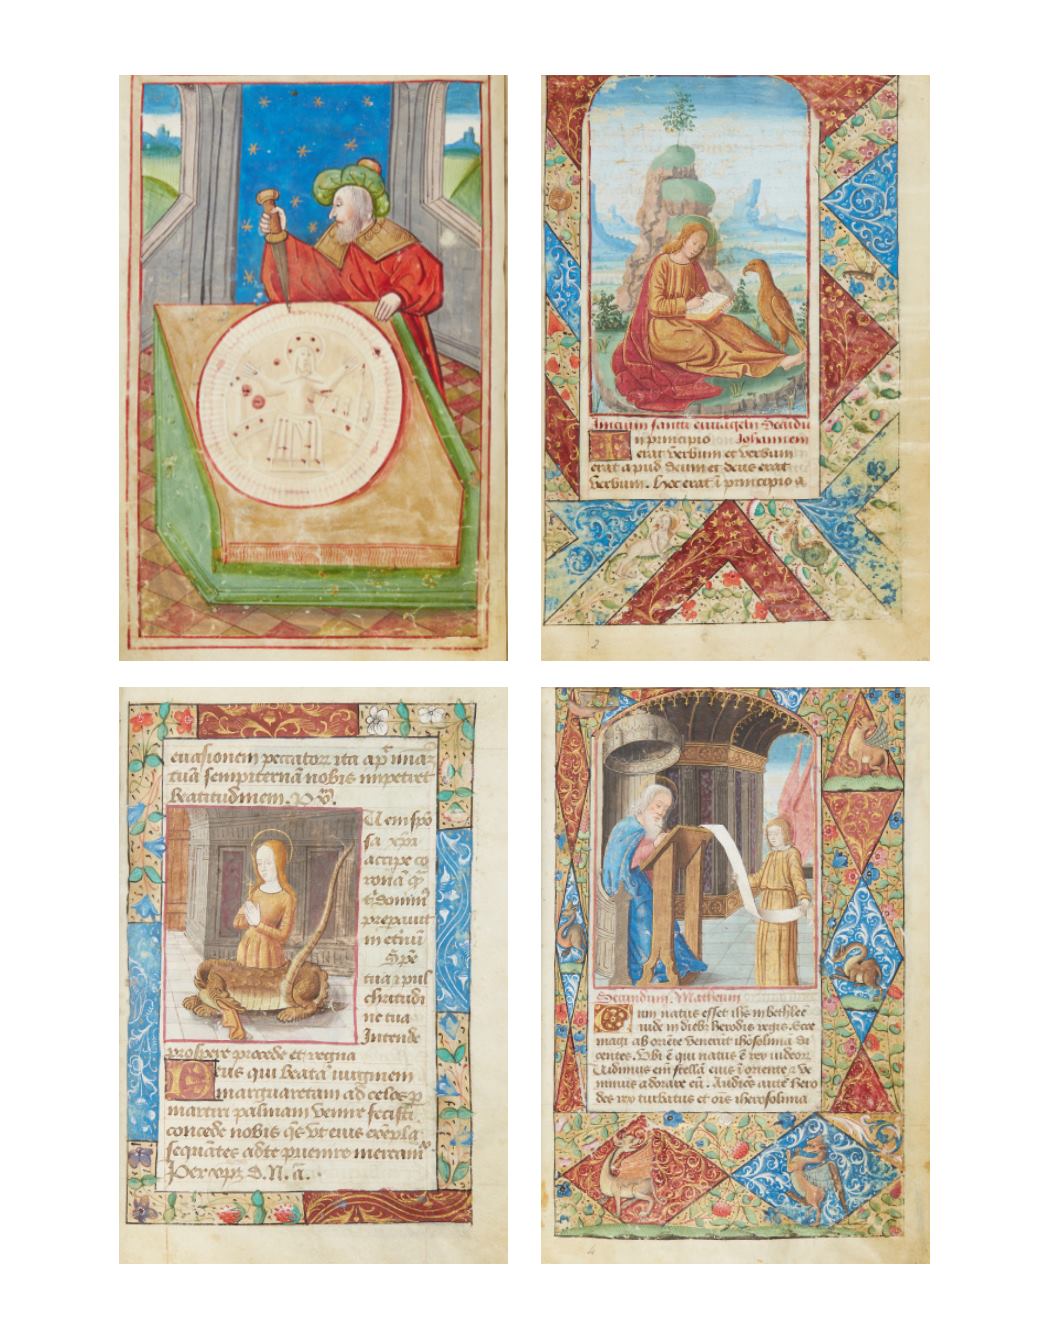 Inicium sancti euuāgelii Secūdū
In principio Johannem
erat verbum et verbum
erat apud deum et deus erat
verbum. Hoc erat ī principio a
2
euasionem peccator ita ap̄ mar
tuā sempiternā nobis impetret
beatitudinem. v̄.
Ueni spō
sa xp̄i
accipe co
ronā q̄
t̄ dominꝰ
preparauit
in et̄nū
Spē
tua ⁊ pul
chritudi
ne tua
Intende
prospere procede et regna
Deus qui beatā uirginem
marguaretam ad celos p
martiri palmam venire fecisti
concede nobis q̄s vt eius exēpla
sequētes ad te puenire mereamꝰ
Per
Secundum Matheum
Cum natus esset ih̄s in bethleē
iude in diebꝰ herodis regis. Ecce
magi ab oriēte venerūt iherosolimā di
centes. Vbi ē qui natus ē rex iudeorꝝ
Uidimus em̄ stellā eius ī oriente ⁊ ve
nimus adorare eū. Audiēs autē hero
des rex turbatus et om̄s iherosolima
4